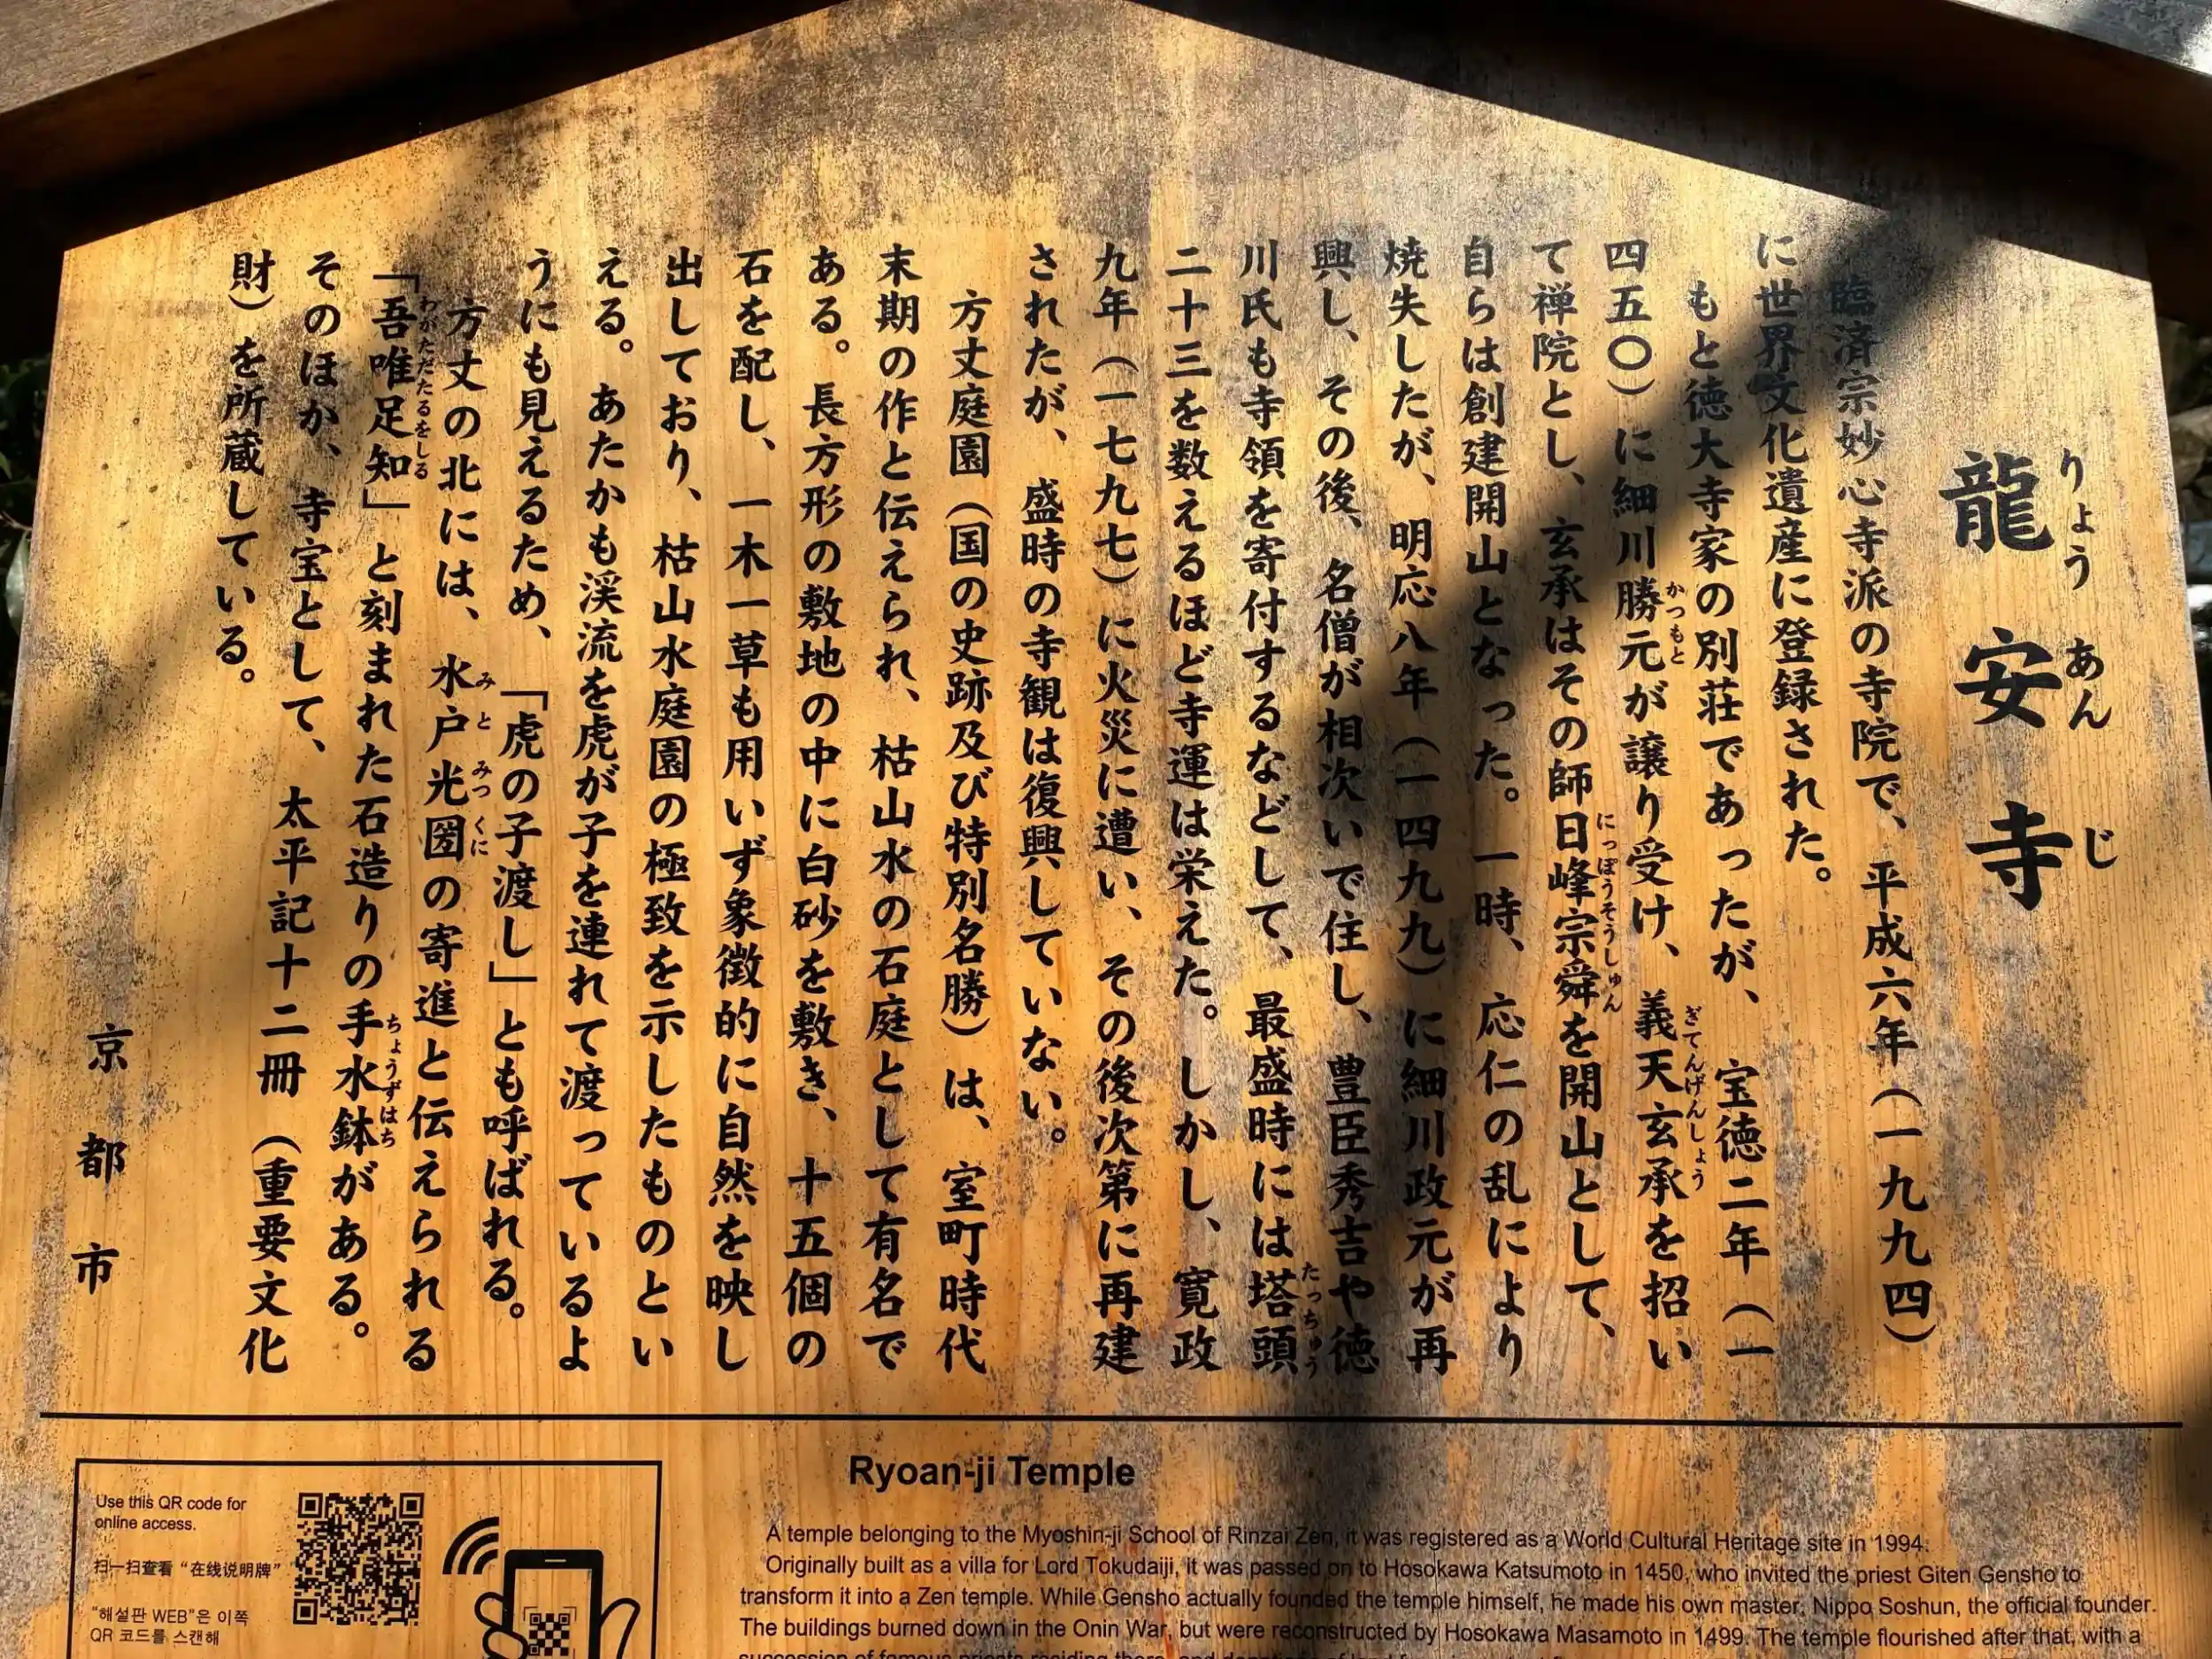 龍安寺
りょうあんじ
臨済宗妙心寺派の寺院で、平成六年（一九九四）
に世界文化遺産に登録された。
もと徳大寺家の別荘であったが、宝徳二年（一
四五〇）に細川勝元が譲り受け、義天玄承を招い
かつもと
ぎてんげんしょう
て禅院とし、玄承はその師日峰宗舜を開山として、
にっぽうそうしゅん
自らは創建開山となった。一時、応仁の乱により
焼失したが、明応八年（一四九九）に細川政元が再
興し、その後、名僧が相次いで住し、豊臣秀吉や徳
川氏も寺領を寄付するなどして、最盛時には塔頭
たっちゅう
二十三を数えるほど寺運は栄えた。しかし、寛政
九年（一七九七）に火災に遭い、その後次第に再建
されたが、盛時の寺観は復興していない。
方丈庭園（国の史跡及び特別名勝）は、室町時代
末期の作と伝えられ、枯山水の石庭として有名で
ある。長方形の敷地の中に白砂を敷き、十五個の
石を配し、一木一草も用いず象徴的に自然を映し
出しており、枯山水庭園の極致を示したものとい
える。あたかも渓流を虎が子を連れて渡っているよ
うにも見えるため、「虎の子渡し」とも呼ばれる。
方丈の北には、水戸光圀の寄進と伝えられる
みとみつくに
「吾唯足知」と刻まれた石造りの手水鉢がある。
わがただたるをしる
ちょうずはち
そのほか、寺宝として、太平記十二冊（重要文化
財）を所蔵している。
京都市
Use this QR code for
online access.
扫一扫查看“在线说明牌”
“해설판 WEB”은 이쪽
QR 코드를 스캔해
Ryoan-ji Temple
A temple belonging to the Myoshin-ji School of Rinzai Zen, it was registered as a World Cultural Heritage site in 1994.
Originally built as a villa for Lord Tokudaiji, it was passed on to Hosokawa Katsumoto in 1450, who invited the priest Giten Gensho to
transform it into a Zen temple. While Gensho actually founded the temple himself, he made his own master, Nippo Soshun, the official founder.
The buildings burned down in the Onin War, but were reconstructed by Hosokawa Masamoto in 1499. The temple flourished after that, with a